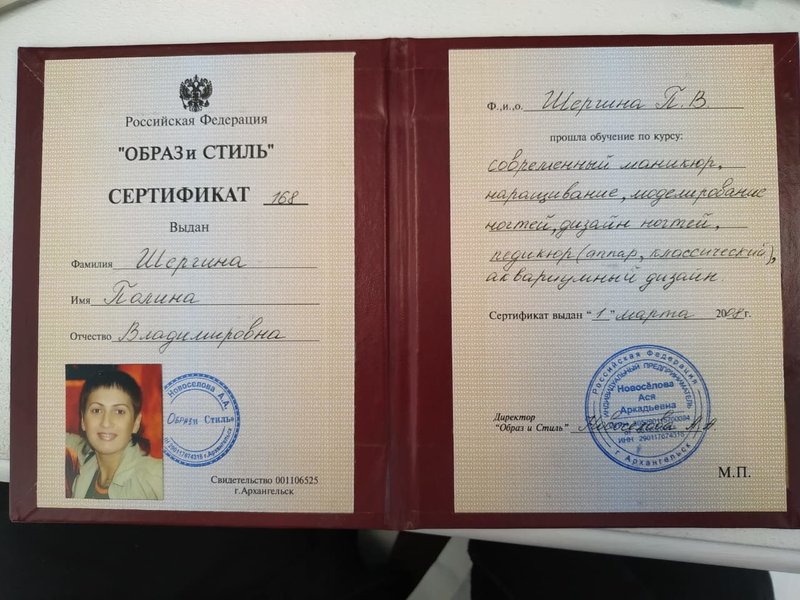 Российская Федерация
"ОБРАЗ и СТИЛЬ"
СЕРТИФИКАТ 168
Выдан
Фамилия Шергина
Имя Полина
Отчество Владимировна
Новоселова А.А.
Образ и Стиль
г. Архангельск
Свидетельство 001106525
г.Архангельск
Ф.,и.,о. Шергина П. В.
прошла обучение по курсу:
современный маникюр,
наращивание, моделирование
ногтей, дизайн ногтей,
педикюр (аппар, классический),
аквариумный дизайн.
Сертификат выдан "1" марта 2008г.
Российская Федерация
ИНДИВИДУАЛЬНЫЙ ПРЕДПРИНИМАТЕЛЬ
Новосёлова
Ася
Аркадьевна
ИНН 290117674316
г Архангельск
Директор
"Образ и Стиль" Новоселова А.А.
М.П.